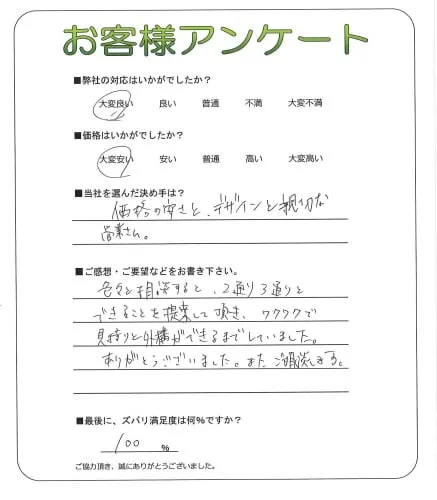 お客様アンケート
■弊社の対応はいかがでしたか？
大変良い 良い 普通 不満 大変不満
■価格はいかがでしたか？
大変安い 安い 普通 高い 大変高い
■当社を選んだ決め手は？
価格の安さと、デザインと親切な
営業さん。
■ご感想・ご要望などをお書き下さい。
色々と相談すると、2通り3通りと
できることを提案して頂き、ワクワクで
見積りと外構ができるまでしていました。
ありがとうございました。また、ご相談します。
■最後に、ズバリ満足度は何％ですか？
100 ％
ご協力頂き、誠にありがとうございました。